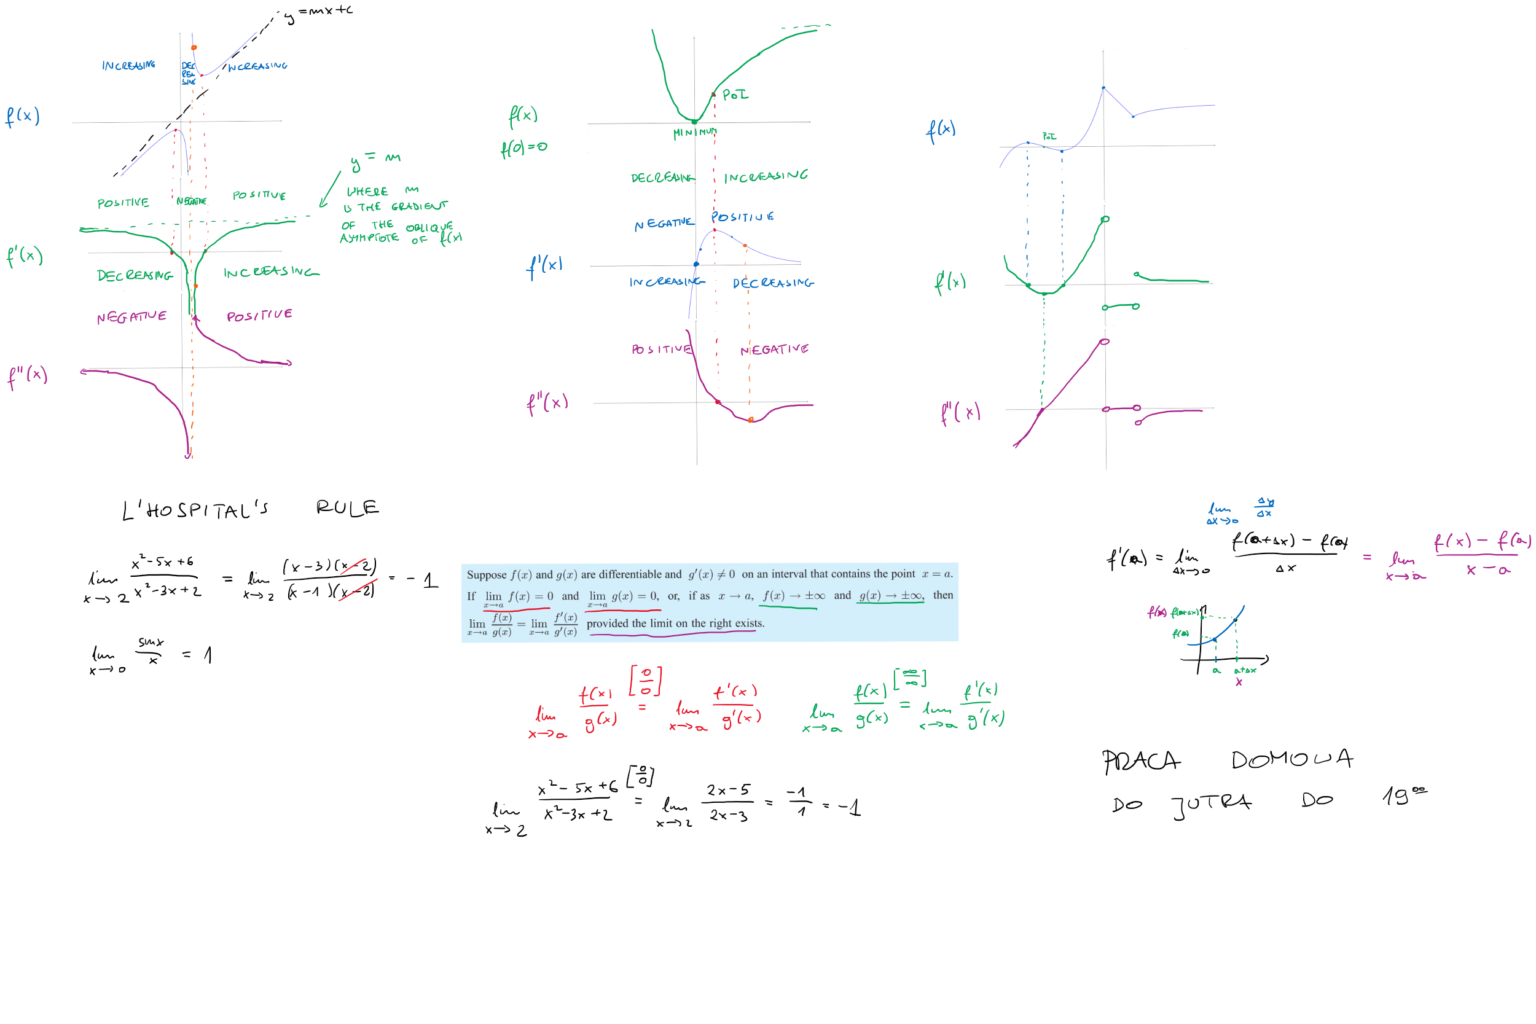 y=mx+c
INCREASING
DEC
REA
SING
INCREASING
f(x)
POSITIVE
NEGATIVE
POSITIVE
y = m
WHERE m
IS THE GRADIENT
OF THE OBLIQUE
ASYMPTOTE OF f(x)
f'(x)
DECREASING
INCREASING
NEGATIVE
POSITIVE
f''(x)
f(x)
f(0)=0
PoI
MINIMUM
DECREASING
INCREASING
NEGATIVE
POSITIVE
f'(x)
INCREASING
DECREASING
POSITIVE
NEGATIVE
f''(x)
f(x)
PoI
f'(x)
f''(x)
L'HOSPITAL'S RULE
lim x→2 (x²-5x+6)/(x²-3x+2) = lim x→2 (x-3)(x-2)/(x-1)(x-2) = -1
lim x→0 sinx/x = 1
Suppose f(x) and g(x) are differentiable and g'(x) ≠ 0 on an interval that contains the point x = a.
If lim x→a f(x) = 0 and lim x→a g(x) = 0, or, if as x → a, f(x) → ±∞ and g(x) → ±∞, then
lim x→a f(x)/g(x) = lim x→a f'(x)/g'(x) provided the limit on the right exists.
lim x→a f(x)/g(x) [0/0] = lim x→a f'(x)/g'(x)
lim x→a f(x)/g(x) [∞/∞] = lim x→a f'(x)/g'(x)
lim x→2 (x²-5x+6)/(x²-3x+2) [0/0] = lim x→2 (2x-5)/(2x-3) = -1/1 = -1
lim Δx→0 Δy/Δx
f'(a) = lim Δx→0 (f(a+Δx) - f(a))/Δx = lim x→a (f(x) - f(a))/(x-a)
f(x) f(a+Δx)
f(a)
a a+Δx
x
PRACA DOMOWA
DO JUTRA DO 19⁰⁰